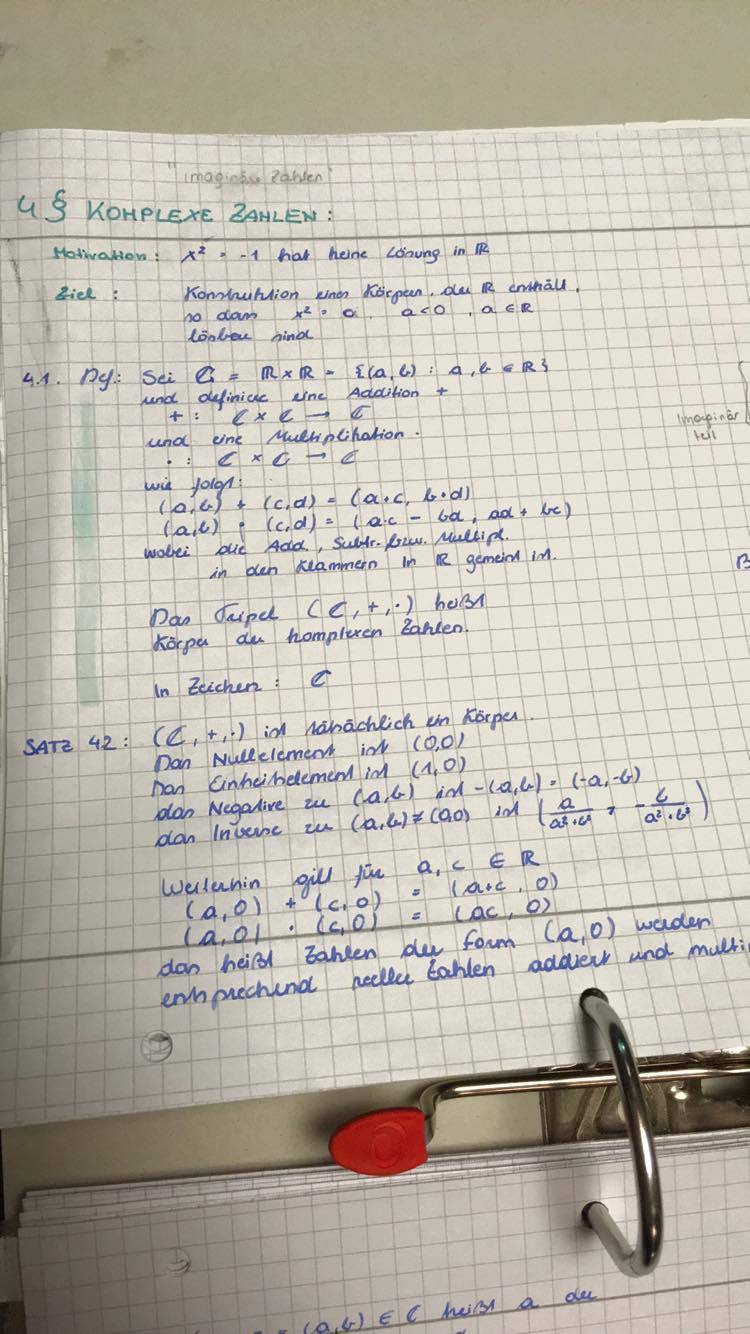 "Imaginäre Zahlen"
4 § KOMPLEXE ZAHLEN:
Motivation: x² = -1 hat keine Lösung in ℝ
Ziel: Konstruktion eines Körpers, der ℝ enthält,
so dass x² = a, a<0, a ∈ ℝ
lösbar sind
4.1. Def.: Sei ℂ = ℝ × ℝ = {(a,b) : a, b ∈ ℝ}
und definiere eine Addition +
+ : ℂ × ℂ → ℂ
und eine Multiplikation ·
· : ℂ × ℂ → ℂ
wie folgt:
(a,b) + (c,d) = (a+c, b+d)
(a,b) · (c,d) = (a·c - bd, ad + bc)
wobei die Add., Subtr. bzw. Multipl.
in den Klammern in ℝ gemeint ist.
Das Tripel (ℂ, +, ·) heißt
Körper der komplexen Zahlen.
In Zeichen: ℂ
SATZ 4.2: (ℂ, +, ·) ist tatsächlich ein Körper.
Das Nullelement ist (0,0)
Das Einheitselement ist (1,0)
das Negative zu (a,b) ist -(a,b) = (-a,-b)
das Inverse zu (a,b) ≠ (0,0) ist (a/(a²+b²), -b/(a²+b²))
Weiterhin gilt für a, c ∈ ℝ
(a,0) + (c,0) = (a+c, 0)
(a,0) · (c,0) = (ac, 0)
das heißt Zahlen der Form (a,0) werden
entsprechend reeller Zahlen addiert und multi
Imaginär
teil
= (a,b) ∈ ℂ heißt a der